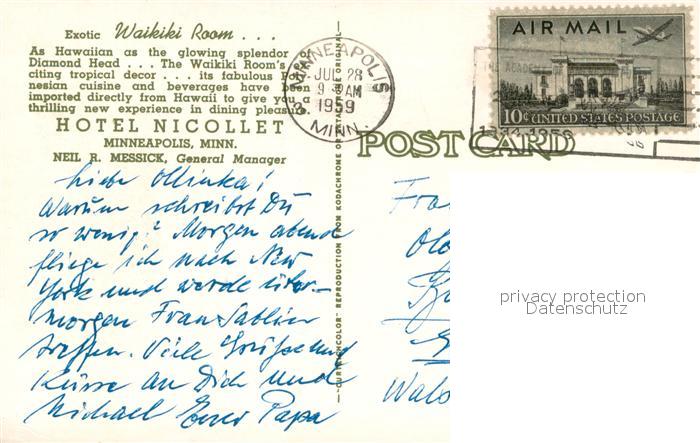 Exotic Waikiki Room . . .
As Hawaiian as the glowing splendor of
Diamond Head . . . The Waikiki Room's
citing tropical decor . . . its fabulous
nesian cuisine and beverages have been
imported directly from Hawaii to give you
thrilling new experience in dining pleasure
HOTEL NICOLLET
MINNEAPOLIS, MINN.
NEIL R. MESSICK, General Manager
MINNEAPOLIS
JUL 28
9 AM
1959
MINN.
AIR MAIL
10¢ UNITED STATES POSTAGE
1934-1959
POST CARD
"CURTEICHCOLOR" REPRODUCTION FROM KODACHROME OR EKTACHROME ORIGINAL
Liebe Ollinka!
Warum schreibst Du
so wenig? Morgen abend
fliege ich nach New
York und werde über-
morgen Frau Sablier
treffen. Viele Grüsse und
Küsse an Dich und
Michael Euer Papa
Fra
Wals
privacy protection
Datenschutz